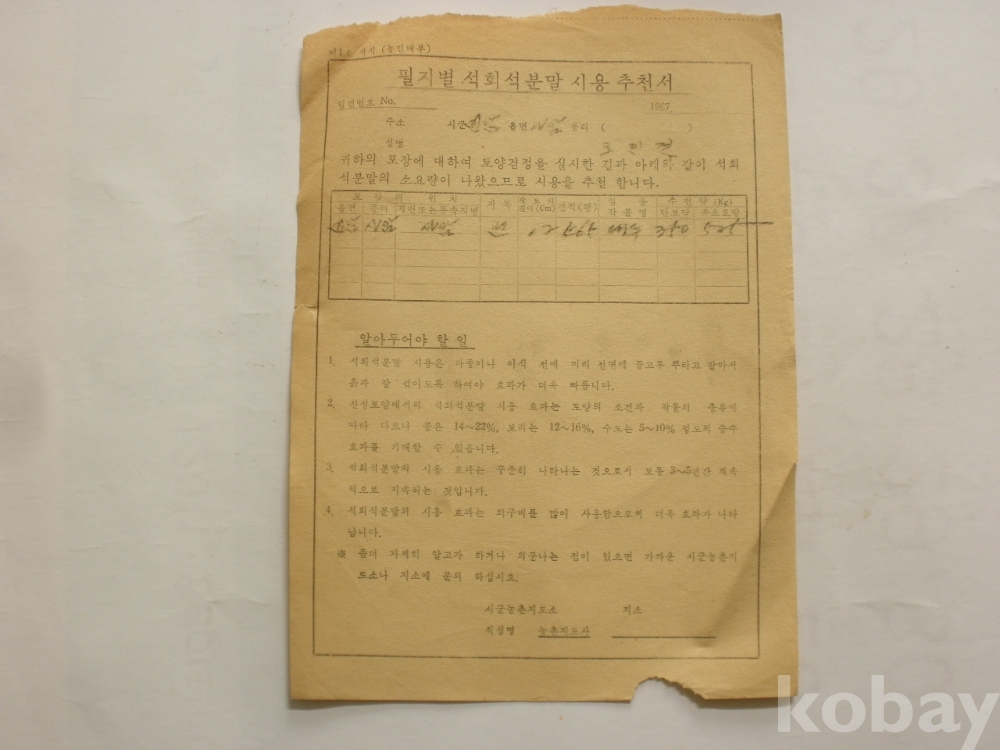 서식 (농민배부)
필지별 석회석분말 시용 추천서
일련번호 No.
1967.
주소 시군 읍면 동리 ( )
성명
귀하의 포장에 대하여 토양검정을 실시한 결과 아래와 같이 석회
석분말의 소요량이 나왔으므로 시용을 추천 합니다.
포장의 위치 지목 작토의 깊이(Cm) 면적(평) 추천량(Kg)
읍면 동리 작물명 단보당 총소요량
12
알아두어야 할 일
1. 석회석분말 시용은 파종이나 이식 전에 미리 전면에 골고루 뿌리고 갈아서
흙과 잘 섞이도록 하여야 효과가 더욱 빠릅니다.
2. 산성토양에서의 석회석분말 시용 효과는 토양의 조건과 작물의 종류에
따라 다르나 콩은 14~22%, 보리는 12~16%, 수도는 5~10% 정도의 증수
효과를 기대할 수 있읍니다.
3. 석회석분말의 시용 효과는 꾸준히 나타나는 것으로서 보통 3~5년간 계속
적으로 지속되는 것입니다.
4. 석회석분말의 시용 효과는 퇴구비를 많이 사용함으로써 더욱 효과가 나타
납니다.
※ 좀더 자세히 알고자 하거나 의문나는 점이 있으면 가까운 시군농촌지
도소나 지소에 문의 하십시요.
시군농촌지도소 지소
직성명 농촌지도사
kobay